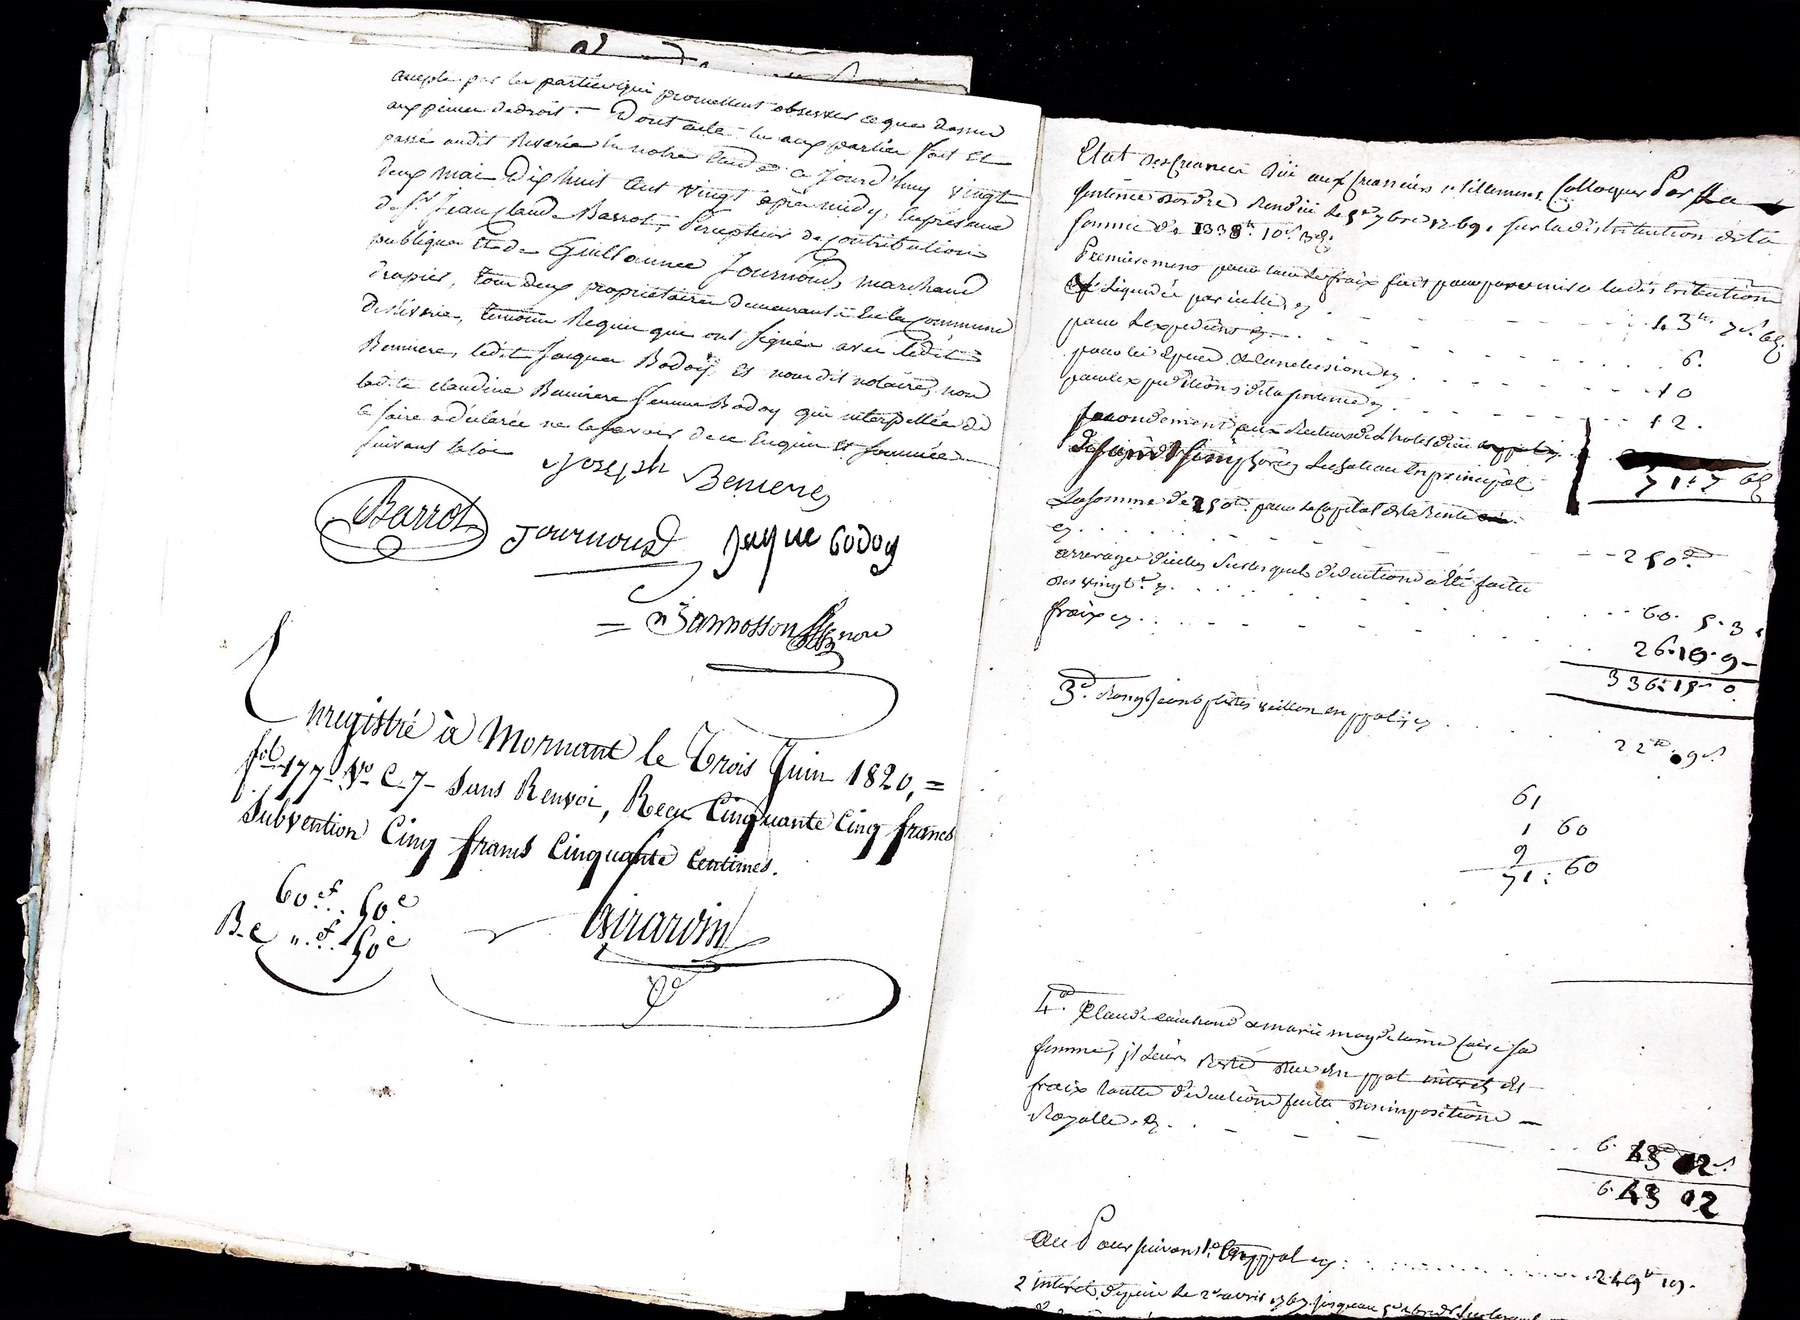 accepté par les parties qui promettent observer ce que dessus
aux peines de droit. Dont acte lu aux parties fait et
passé audit Riverie en notre étude ce jourd'huy vingt
deux mai dix huit cent vingt après midy, en présence
de Sr Jean Claude Barrot, Percepteur de contributions
publiques et de Guillaume Journoud, marchand
drapier, tous deux propriétaires demeurants en la Commune
de Riverie, témoins requis qui ont signés avec ledit
Benniere, ledit Jacques Bodoy et nous dit notaire, non
ladite claudine Benniere femme Bodoy qui interpellée de
le faire a déclarée ne le savoir de ce enquise et sommée
suivant la loi
Joseph Beniere
Barrot Journoud Jaque bodoy
enregistré à Mornant le Trois Juin 1820, =
fol 177 Vo C 7 - Sans Renvoi, Reçu Cinquante Cinq francs
Subvention Cinq francs Cinquante Centimes.
60 f. 50 c
" f. 50 c
Girardin
Etat des Creances düe aux Creanciers utillement Colloquer Par La
sentence dordre Rendüe le 5e 7bre 1769, sur la distribution de la
somme de 1338 tt 10 s 3 d
Premierement pour tous les fraix fait pour parvenir a la distribution
et Liquidée par icelle cy 43 tt 7 s 6 d
pour Lexpedition cy 6.
10
pour lexpedition de la sentence cy 12.
secondement aux Recteurs de Lhotel dieu
71 : 7 6 d
La somme de 250 tt pour le Capital de la Rente
cy 250 tt
arrerages dicelles sur lesquels deduction a été faitte
des vingt.e cy 60. 5. 3
fraix cy 26. 10. 9
336. 15. 0
3o. en ppal cy
22 tt 9 s
61
1 60
9
71 : 60
4o. Claude et marie magdelaine sa
femme, il Leurs Reste due en ppal interets et
fraix toutte deduction faitte des impositions
Royalle cy 6. 43 12 s
6. 43 12
au Poursuivant 1o en ppal cy 249 tt 19.
2 interets depuis le 2e avril 1767 jusqueau 5e